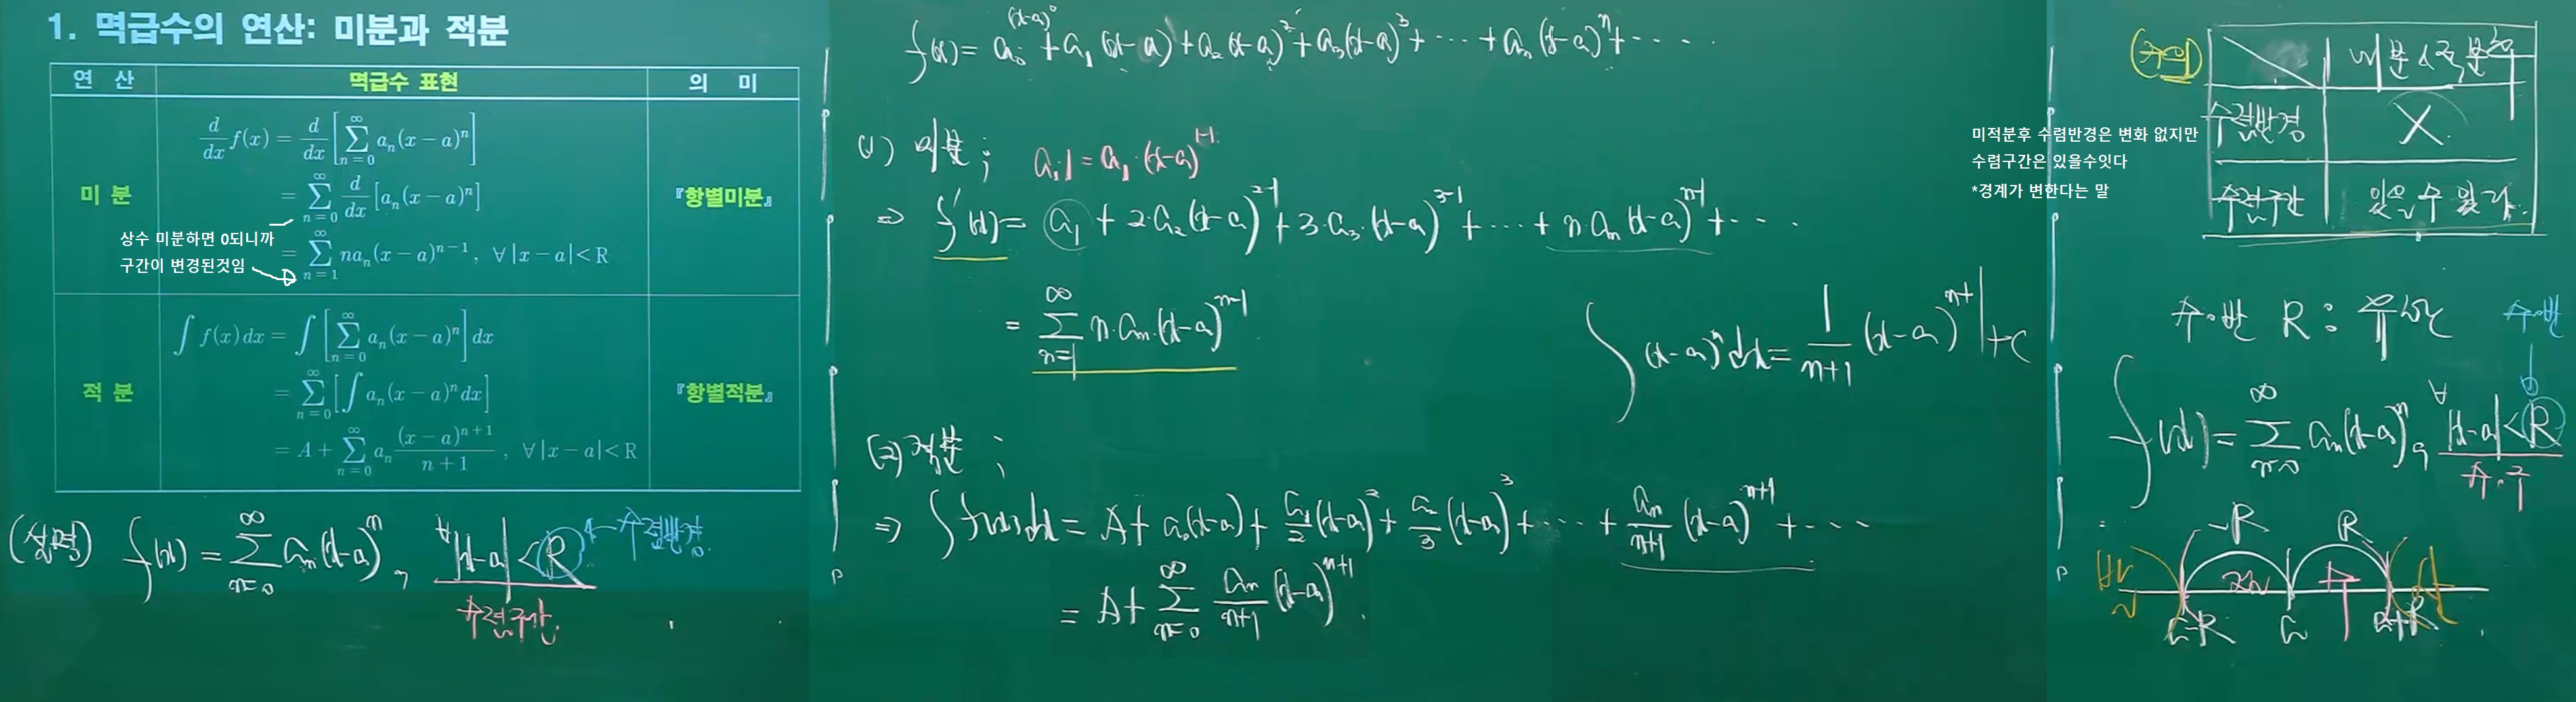 1. 멱급수의 연산: 미분과 적분
연 산 멱급수 표현 의 미
미 분
d/dx f(x) = d/dx [∑_{n=0}^{∞} a_n(x-a)^n]
= ∑_{n=0}^{∞} d/dx [a_n(x-a)^n]
= ∑_{n=1}^{∞} na_n(x-a)^{n-1}, ∀|x-a|<R
『항별미분』
상수 미분하면 0되니까
구간이 변경된것임
적 분
∫ f(x)dx = ∫ [∑_{n=0}^{∞} a_n(x-a)^n] dx
= ∑_{n=0}^{∞} [∫ a_n(x-a)^n dx]
= A + ∑_{n=0}^{∞} a_n (x-a)^{n+1}/(n+1), ∀|x-a|<R
『항별적분』
(설명) f(x) = ∑_{n=0}^{∞} a_n(x-a)^n, ∀|x-a|<R ← 수렴반경
수렴구간
(x-a)^0
f(x) = a_0 + a_1(x-a) + a_2(x-a)^2 + a_3(x-a)^3 + ⋯ + a_n(x-a)^n + ⋯
(1) 미분 ;
a_1·1 = a_1·(x-a)^{1-1}
⇒ f'(x) = a_1 + 2·a_2(x-a)^{2-1} + 3·a_3·(x-a)^{3-1} + ⋯ + n·a_n(x-a)^{n-1} + ⋯
= ∑_{n=1}^{∞} n·a_n·(x-a)^{n-1}
∫(x-a)^n dx = 1/(n+1) (x-a)^{n+1} + C
(2) 적분 ;
⇒ ∫f(x)dx = A + a_0(x-a) + a_1/2 (x-a)^2 + a_2/3 (x-a)^3 + ⋯ + a_n/(n+1) (x-a)^{n+1} + ⋯
= A + ∑_{n=0}^{∞} a_n/(n+1) (x-a)^{n+1}.
주의
수렴반경 X
수렴구간 있을 수 있다.
미적분후 수렴반경은 변화 없지만
수렴구간은 있을수잇다
*경계가 변한다는 말
수·반 R :
수·반
f(x) = ∑_{n=0}^{∞} a_n(x-a)^n, ∀|x-a|<R
수·구
-R R
a-R a a+R